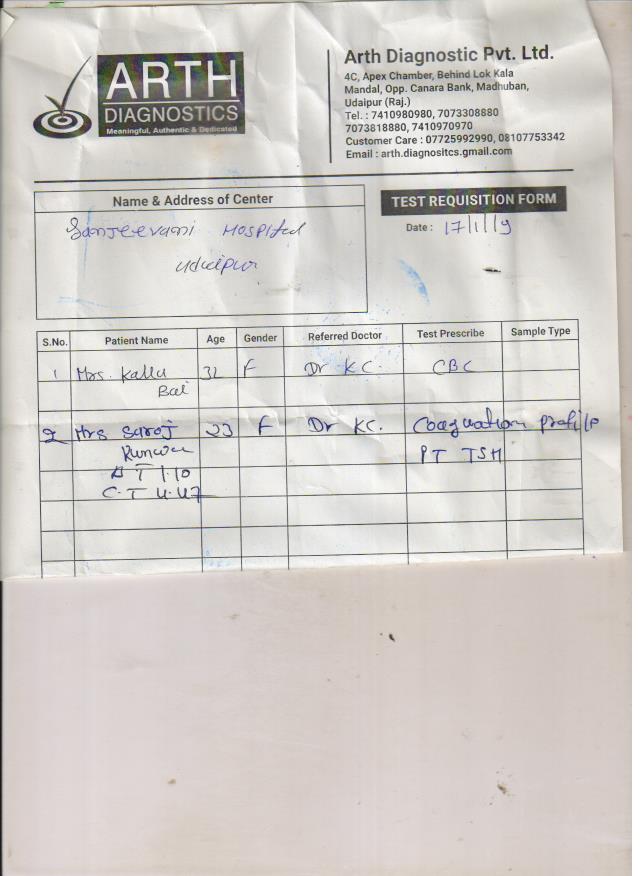 ARTH
DIAGNOSTICS
Meaningful, Authentic & Dedicated
Arth Diagnostic Pvt. Ltd.
4C, Apex Chamber, Behind Lok Kala
Mandal, Opp. Canara Bank, Madhuban,
Udaipur (Raj.)
Tel. : 7410980980, 7073308880
7073818880, 7410970970
Customer Care : 07725992990, 08107753342
Email : arth.diagnositcs.gmail.com
Name & Address of Center
Sanjeevani Hospital
Udaipur
TEST REQUISITION FORM
Date : 17/1/19
S.No. Patient Name Age Gender Referred Doctor Test Prescribe Sample Type
1 Mrs. Kallu 32 F Dr KC. CBC
Bai
2 Mrs Saroj 23 F Dr KC. Coaguation Profile
Kunwar PT TSH
B T 1.10
C.T 4.47